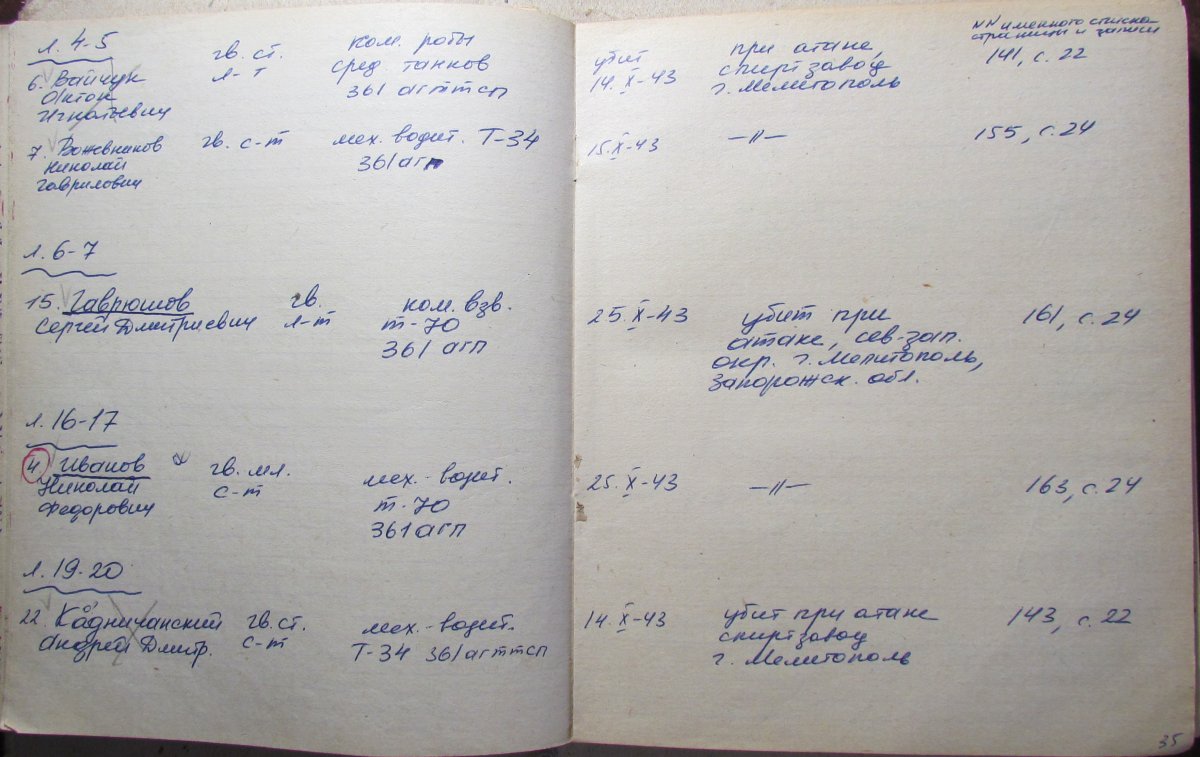 л. 4-5
6. Вайчук гв. ст. ком. роты
Антон л-т сред. танков
Игнатьевич 361 агттсп
7. Вожевников гв. с-т мех. водит. Т-34
Николай 361 агп
Гаврилович
л. 6-7
15. Гаврюшов гв. ком. взв.
Сергей Дмитриевич л-т т-70
361 агп
л. 16-17
4. Иванов гв. мл. мех.-водит.
Николай с-т т-70
Федорович 361 агп
л. 19-20
22. Кадничанский гв. ст. мех.-водит.
Андрей Дмитр. с-т Т-34 361 агттсп
NN именного списка
страницы и записи
убит при атаке, 141, с. 22
14. X-43 спиртзавод
г. Мелитополь
15. X-43 —//— 155, с. 24
25. X-43 убит при 161, с. 24
атаке, сев-зап.
окр. г. Мелитополь,
Запорожск. обл.
25. X-43 —//— 163, с. 24
14. X-43 убит при атаке 143, с. 22
спиртзавод
г. Мелитополь
35